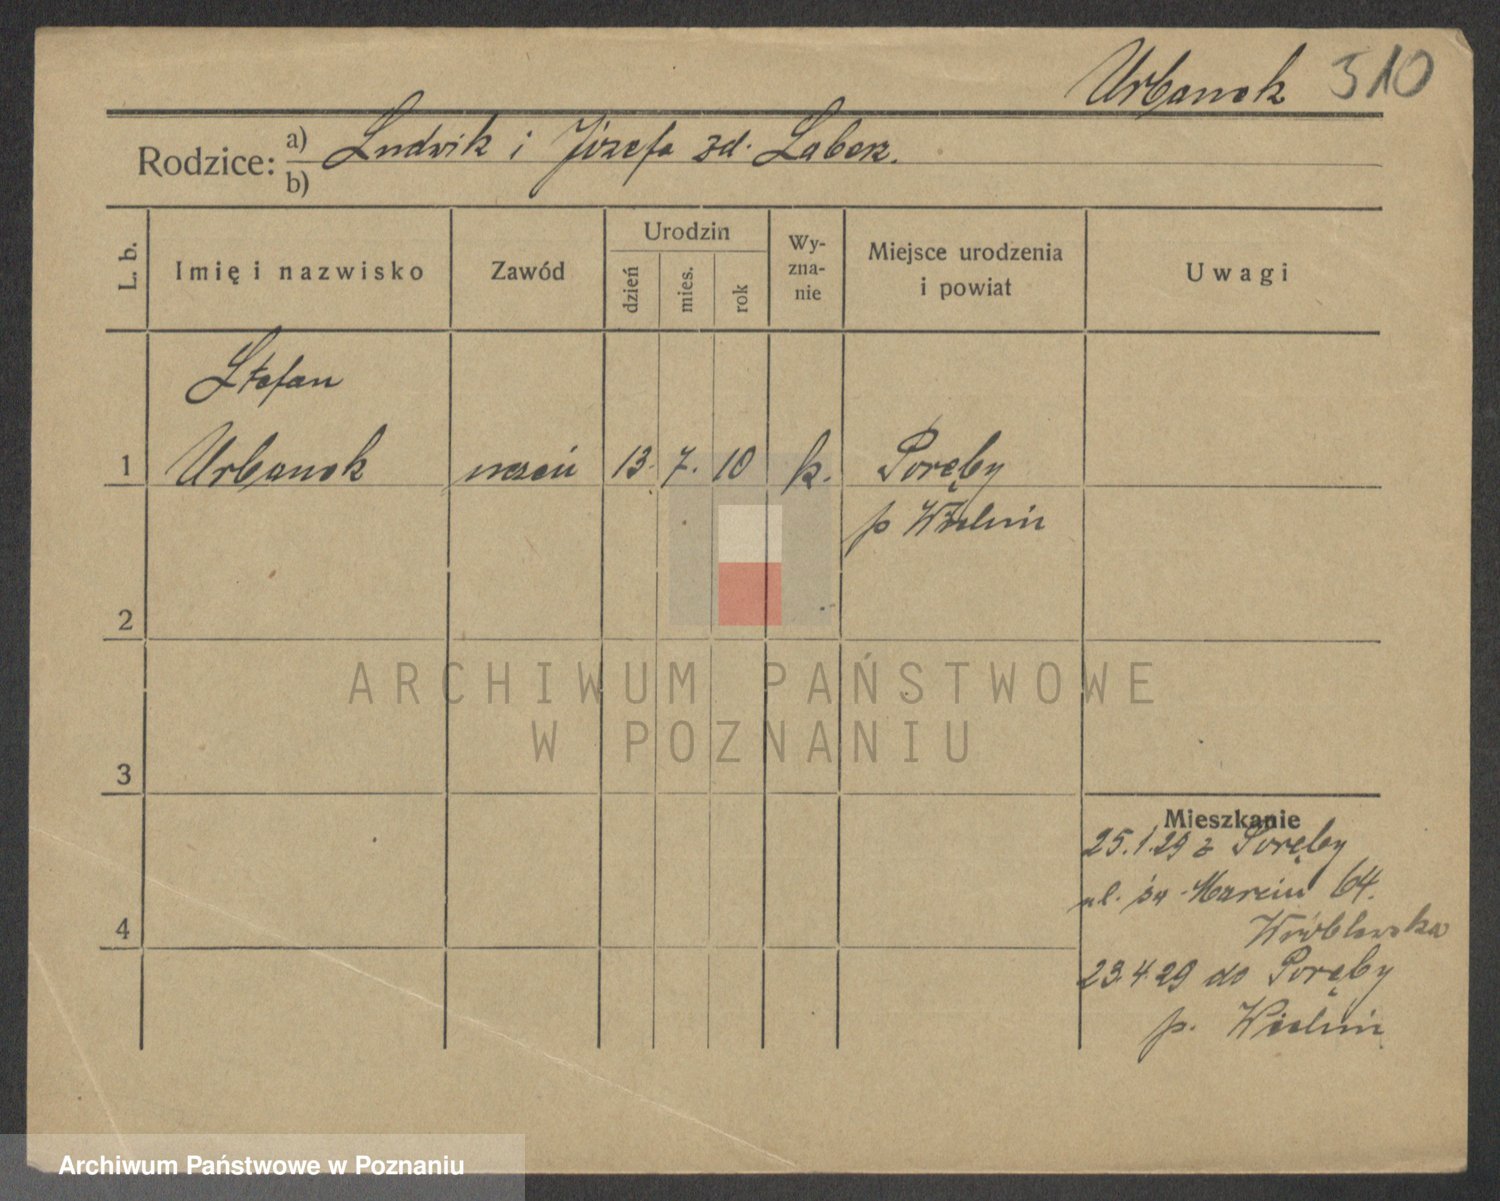 Urbanek 510
Rodzice: a) Ludwik i Józefa zd. Laberz.
b)
L. b.
Imię i nazwisko
Zawód
Urodzin
dzień
mies.
rok
Wy-
zna-
nie
Miejsce urodzenia
i powiat
Uwagi
Stefan
1 Urbanek uczeń 13. 7. 10 k. Poręby
p Wieluń
2
3
4
ARCHIWUM PAŃSTWOWE
W POZNANIU
Mieszkanie
25.1.29 z Poręby
ul. św. Marcin 64.
Wróblewska
23.4 29 do Poręby
p. Wieluń
Archiwum Państwowe w Poznaniu